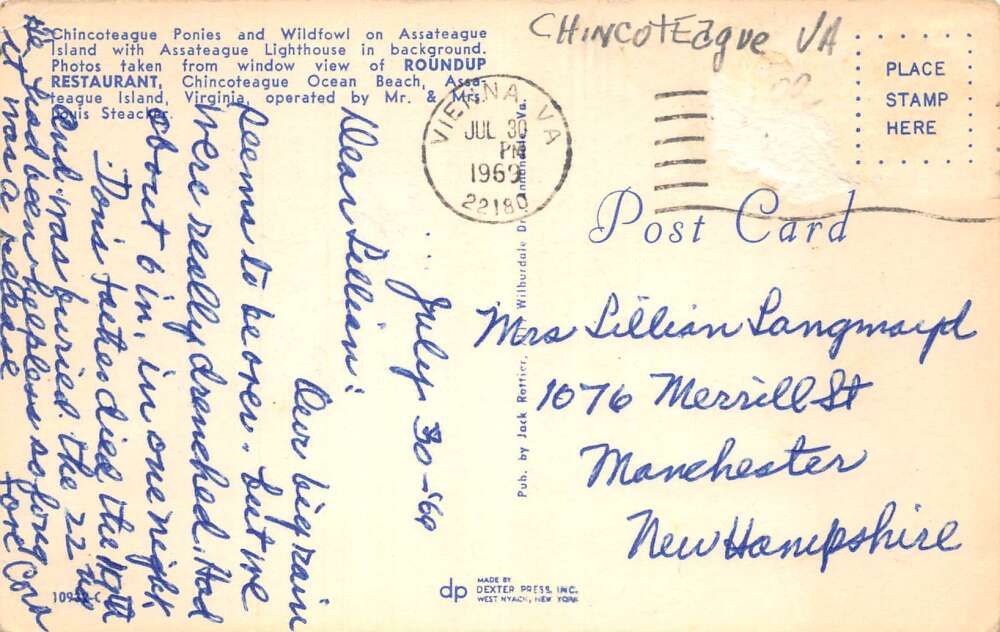 Chincoteague Ponies and Wildfowl on Assateague
Island with Assateague Lighthouse in background.
Photos taken from window view of ROUNDUP
RESTAURANT, Chincoteague Ocean Beach, Assa-
teague Island, Virginia, operated by Mr. & Mrs.
Louis Steacker.
CHINCOTEague VA
PLACE
STAMP
HERE
VIENNA, VA
JUL 30
PM
1969
22180
Post Card
July 30-'69
Dear Lillian:
Our big rain
seems to be over - but we
were really drenched. Had
about 6 in. in one night.
Doris father died the
and was buried the 22
He had been helpless so long
it was a release
Love
Mrs Lillian Langmayd
1076 Merrill St
Manchester
New Hampshire
Pub. by Jack Rottier, Wilburdale Annandale, Va.
10942-C
dp
MADE BY
DEXTER PRESS, INC.
WEST NYACK, NEW YORK